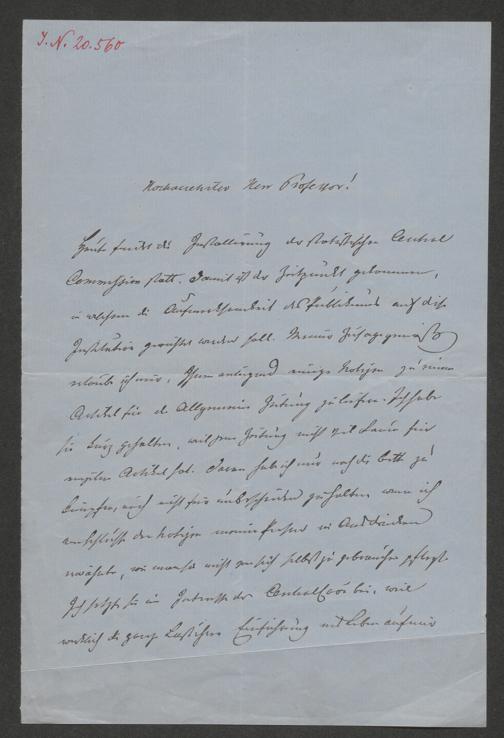 J. N. 20.560
Hochverehrter Herr Professor!
Heute findet die Installierung der statistischen Central
Commission statt. Damit ist der Zeitpunkt gekommen,
in welchem die Aufmerksamkeit des Publikums auf diese
Institution gerichtet werden soll. Meiner Zusage gemäß
erlaube ich mir, Ihnen anliegend einige Notizen zu einem
Artikel für die Allgemeine Zeitung zu liefern. Ich habe
sie kurz gehalten, weil jene Zeitung nicht viel Raum für
Artikel hat. Daran habe ich nur noch die Bitte zu
knüpfen, mich nicht für unbescheiden zu halten wenn ich
am Schlusse der Notizen meine Person in Ausdrücken
erwähnte, wie man sie nicht von sich selbst zu gebrauchen pflegt.
Ich setzte sie im Interesse der bei, weil
wirklich die ganze Last ihrer Einführung ins Leben auf mir